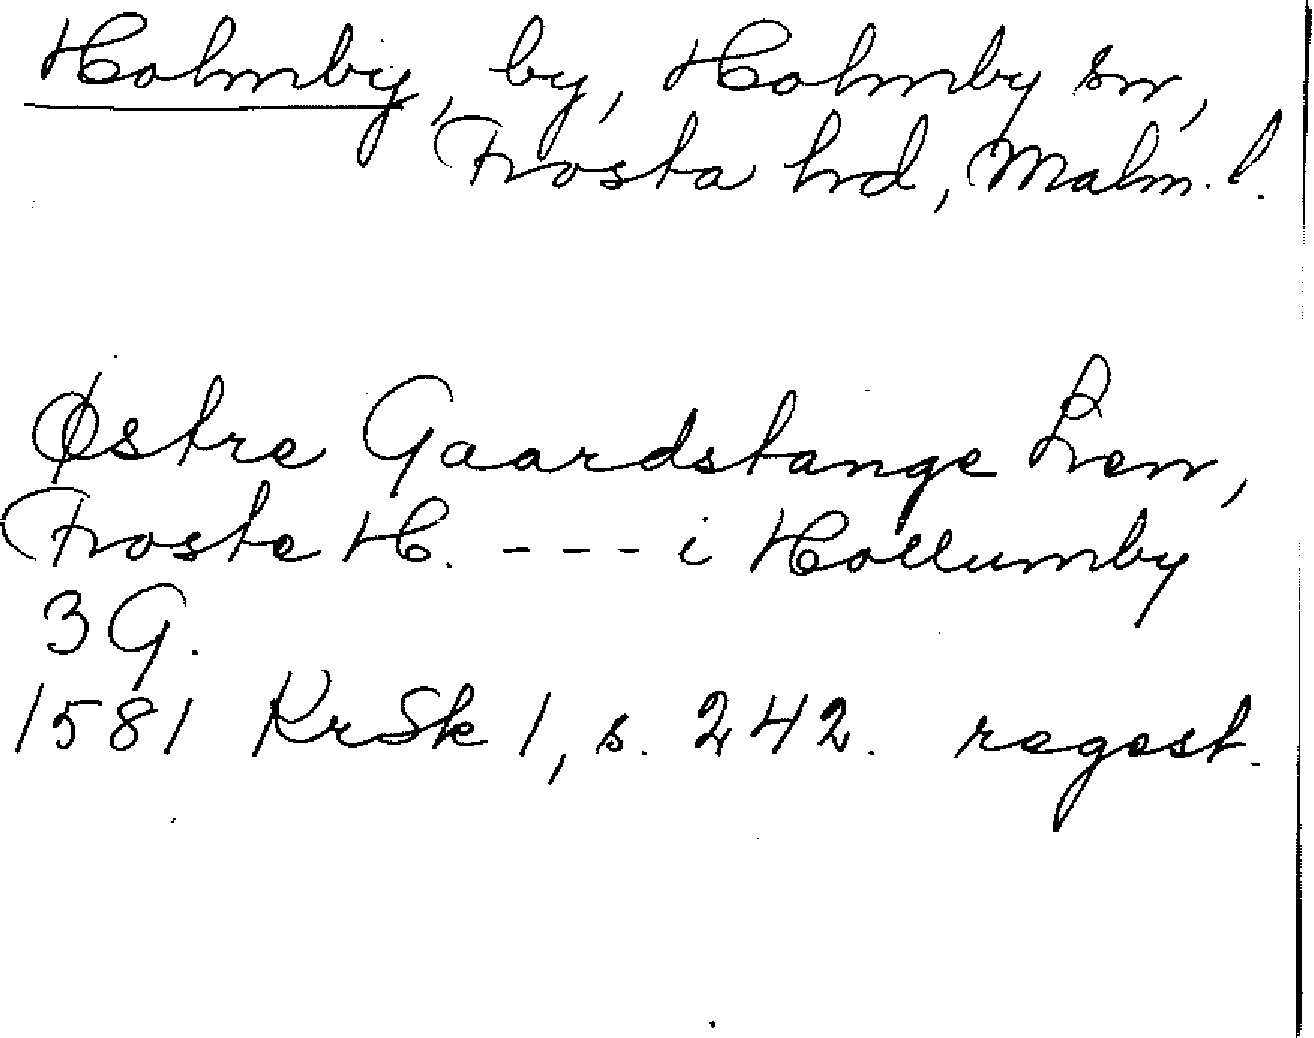 Holmby, by, Holmby sn,
Frosta hrd, Malm. l.
Østre Gaardstange Len,
Froste H. - - - i Hollumby
3 G.
1581 KrSk 1, s. 242. regest.